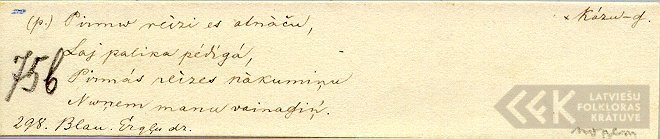 (p.) Pirmu reizi es atnāču, × Kāzu-g.
Laj palika pēdīgā,
75b Pirmās reizes nākumiņu
Nuņem manu vainadziņ.
298. Blau. Ērgļu dr.
LATVIEŠU
FOLKLORAS
KRĀTUVE